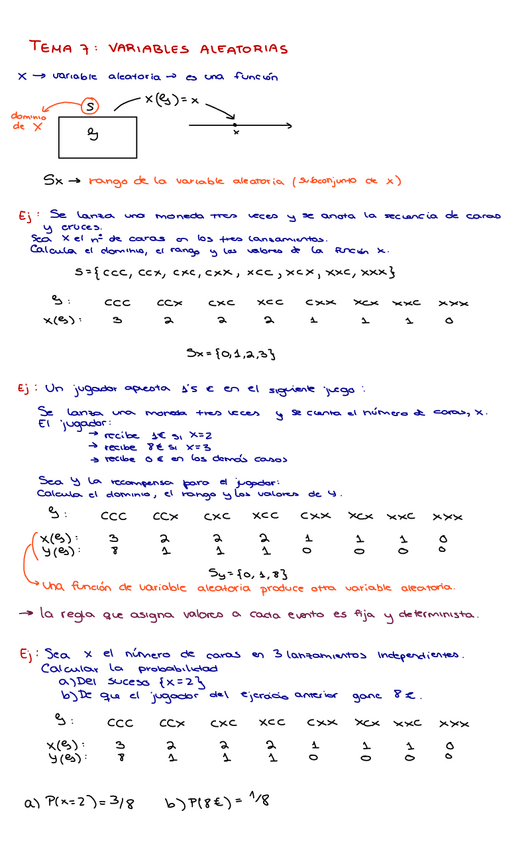 TEMA 7: VARIABLES ALEATORIAS
X → variable aleatoria → es una función
S
X(ξ)=x
dominio
de X
ξ
x
Sx → rango de la variable aleatoria (subconjunto de x)
Ej: Se lanza una moneda tres veces y se anota la secuencia de caras
y cruces.
Sea X el nº de caras en los tres lanzamientos.
Calcula el dominio, el rango y los valores de la función X.
S={CCC, CCX, CXC, CXX, XCC, XCX, XXC, XXX}
ξ: CCC CCX CXC XCC CXX XCX XXC XXX
X(ξ): 3 2 2 2 1 1 1 0
Sx={0,1,2,3}
Ej: Un jugador apuesta 1'5 € en el siguiente juego:
Se lanza una moneda tres veces y se cuenta el número de caras, X.
El jugador:
→ recibe 1€ si X=2
→ recibe 8€ si X=3
→ recibe 0€ en los demás casos
Sea Y la recompensa para el jugador:
Calcula el dominio, el rango y los valores de Y.
ξ: CCC CCX CXC XCC CXX XCX XXC XXX
X(ξ): 3 2 2 2 1 1 1 0
Y(ξ): 8 1 1 1 0 0 0 0
Sy={0,1,8}
Una función de variable aleatoria produce otra variable aleatoria.
→ la regla que asigna valores a cada evento es fija y determinista.
Ej: Sea X el número de caras en 3 lanzamientos independientes.
Calcular la probabilidad
a) Del suceso {X=2}
b) De que el jugador del ejercicio anterior gane 8€.
ξ: CCC CCX CXC XCC CXX XCX XXC XXX
X(ξ): 3 2 2 2 1 1 1 0
Y(ξ): 8 1 1 1 0 0 0 0
a) P(x=2)=3/8 b) P(8€)= 1/8